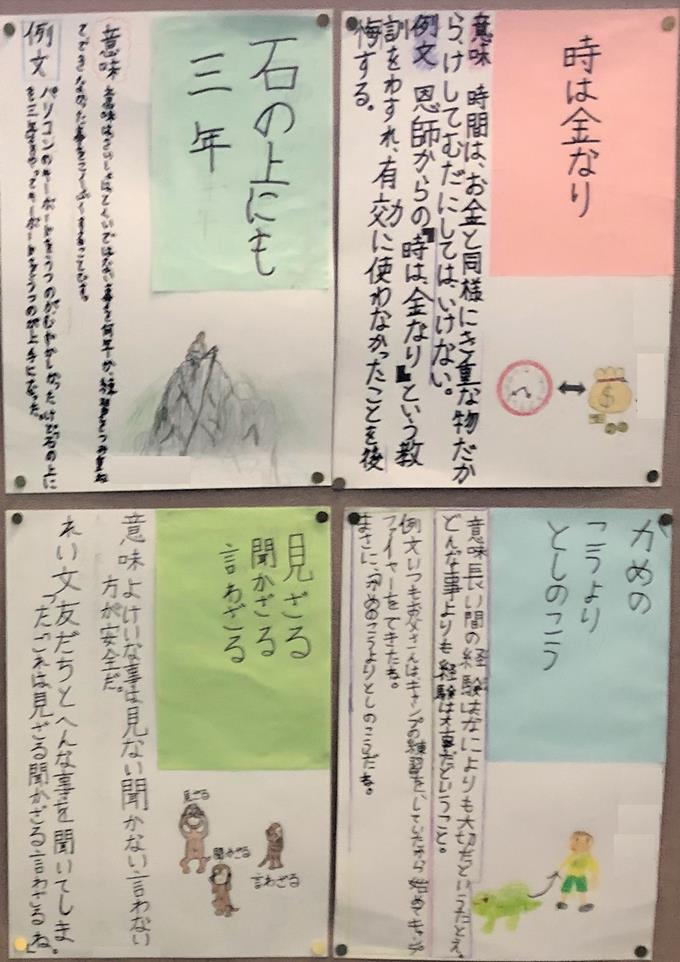 時は金なり
意味 時間は、お金と同様にき重な物だか
ら、けしてむだにしてはいけない。
例文 恩師からの『時は金なり』という教
訓をわすれ、有効に使わなかったことを後
悔する。
石の上にも
三年
意味 意味はさいしょは ではない事を何年か練習をつみ重ね
てできなかった事を
例文 パソコンのキーボードをうつのがむずかしかったけど石の上に
も三年 やってキーボードをうつのが上手になった。
かめの
こうより
としのこう
意味長い間の経験はなによりも大切だというたとえ。
どんな事よりも経験は大事だということ。
例文いつもお父さんはキャンプの練習をしていたから始めてキャンプ
ファイヤーをできたね。
まさに、かめのこうよりとしのこうだね。
見ざる
聞かざる
言わざる
意味よけいな事は見ない聞かない言わない
方が安全だ。
れい文友だちとへんな事を聞いてしま
った「これは見ざる聞かざる言わざるね。」
見ざる
聞かざる
言わざる
$